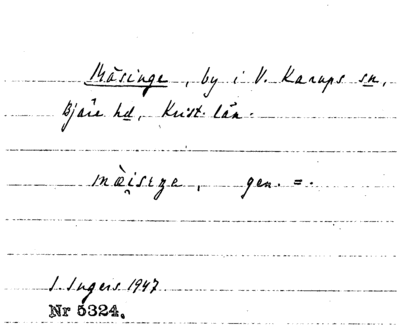 Måsinge, by i V. Karups sn,
Bjäre hd, Krist. län.
mæ̀i̯sɩŋe, gen. = .
I. Ingers 1947
Nr 5324.